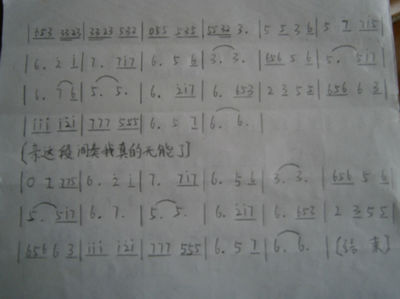 | 653 3323 | 3323 532 | 055 535 | 5532 3. | 5 5 3 6 | 5 7 715 |
| 6. 2 i | 7. 717 | 6. 5 6 | 3. 3. | 656 5 6 | 5. 517 |
| 6. 7 6 | 5. 5. | 6. 217 | 6. 653 | 2 3 5 5 | 656 6 3 |
| iii i2i | 777 555 | 6. 5 7 | 6. 6. |
(亲这段间奏我真的无能了)
| 0 7 775 | 6. 2 i | 7. 717 | 6. 5 6 | 3. 3. | 656 5 6 |
| 5. 517 | 6. 7. | 5. 5. | 6. 217 | 6. 653 | 2 3 5 5 |
| 656 6 3 | iii i2i | 777 555 | 6. 5 7 | 6. 6. | (结束)